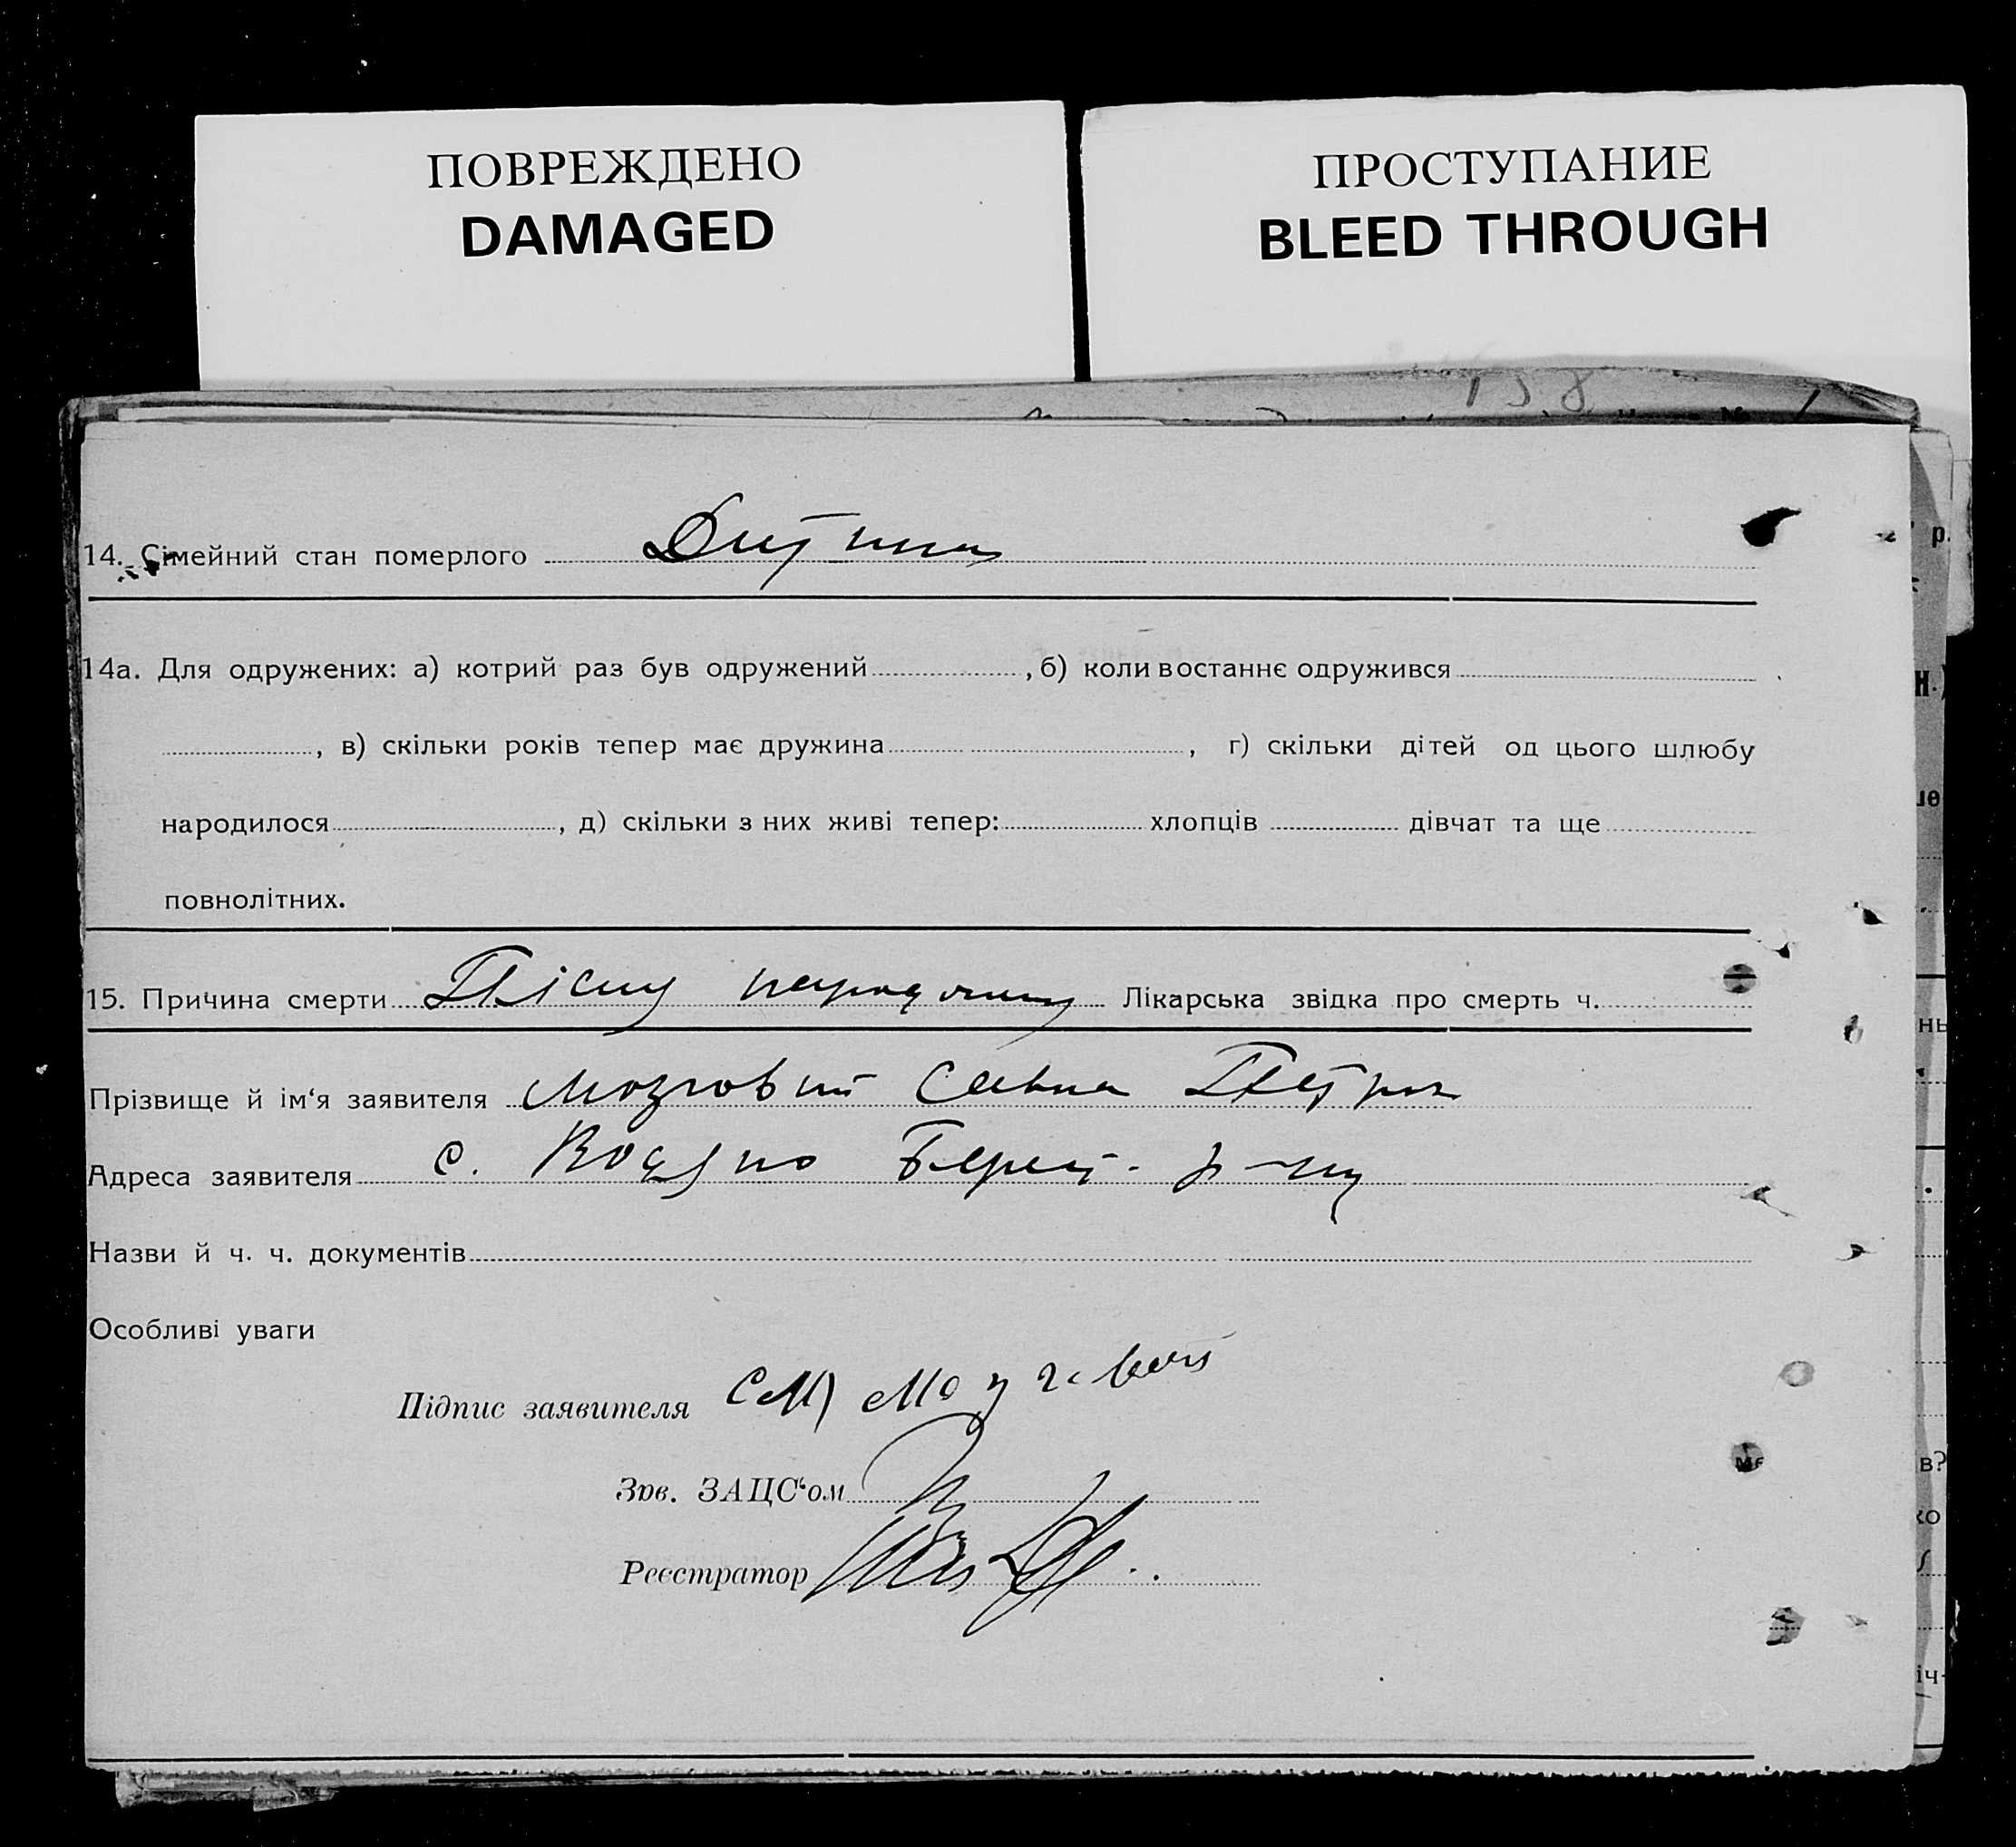 ПОВРЕЖДЕНО
DAMAGED
ПРОСТУПАНИЕ
BLEED THROUGH
158
14. Сімейний стан померлого Дитина
14а. Для одружених: а) котрий раз був одружений , б) коли востаннє одружився
, в) скільки років тепер має дружина , г) скільки дітей од цього шлюбу
народилося , д) скільки з них живі тепер: хлопців дівчат та ще
повнолітних.
15. Причина смерти Після Лікарська звідка про смерть ч.
Прізвище й ім‘я заявителя Мозговий Савка Петров
Адреса заявителя с. Водяно р-ну
Назви й ч. ч. документів
Особливі уваги
Підпис заявителя Мозговой
Зав. ЗАЦС‘ом
Реєстратор